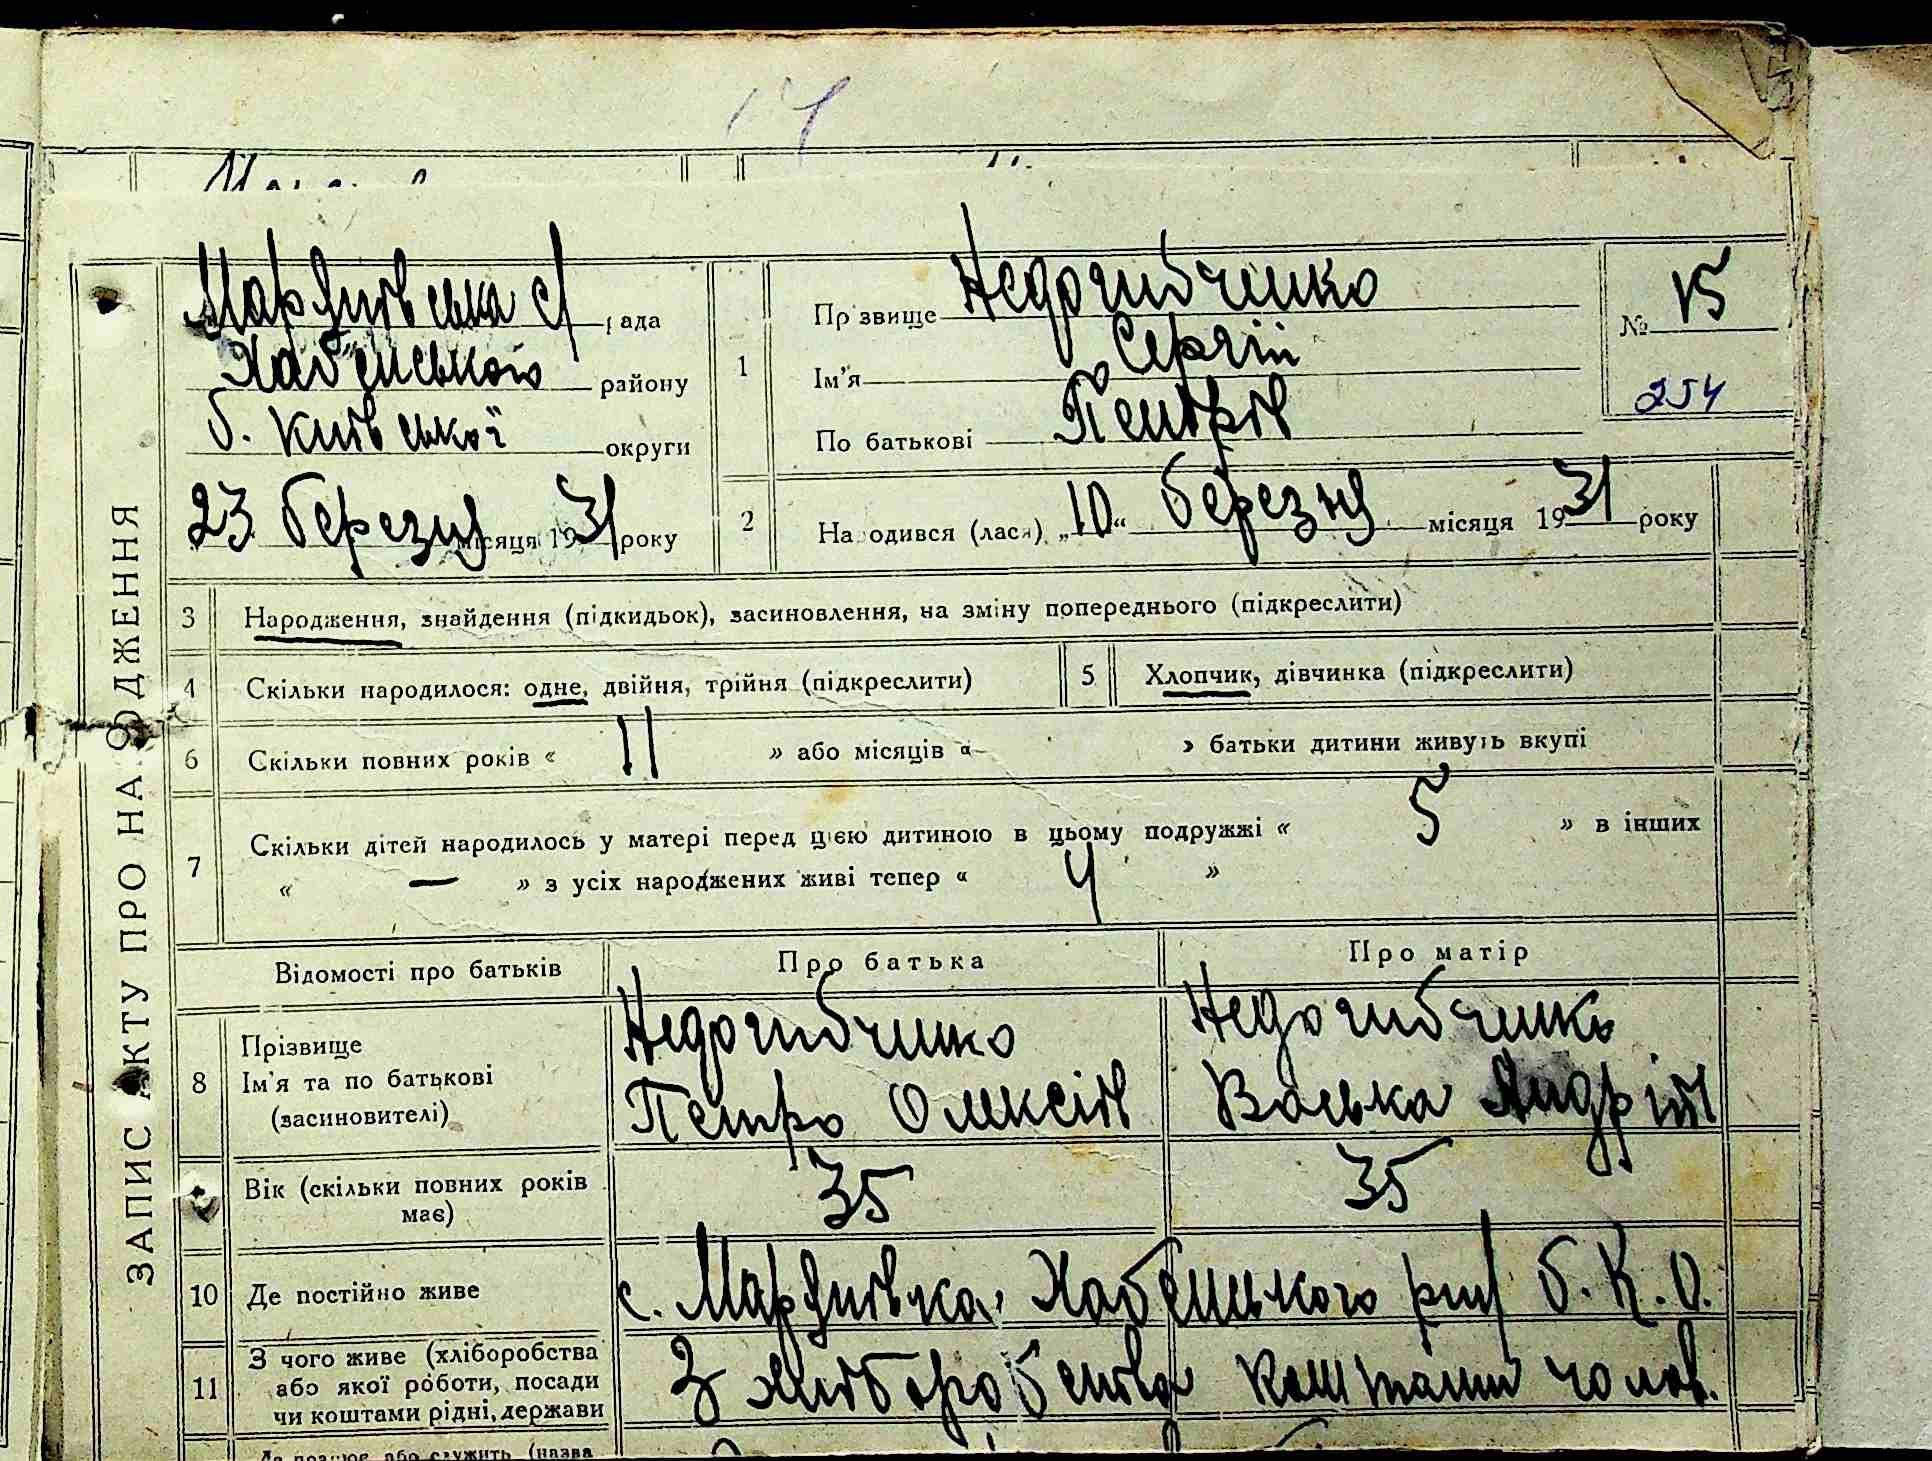 14
Мартинівська с/рада
Хабенського району
б. Київської округи
23 березня місяця 1931 року
1
Прізвище Недогибченко
Ім'я Сергій
По батькові Петрів
№ 15
254
2
Народився (лася) „10“ березня місяця 1931 року
ЗАПИС АКТУ ПРО НАРОДЖЕННЯ
3 Народження, знайдення (підкидьок), засиновлення, на зміну попереднього (підкреслити)
4 Скільки народилося: одне, двійня, трійня (підкреслити)
5 Хлопчик, дівчинка (підкреслити)
6 Скільки повних років « 11 » або місяців « » батьки дитини живуть вкупі
7 Скільки дітей народилось у матері перед цією дитиною в цьому подружжі « 5 » в інших
« — » з усіх народжених живі тепер « 4 »
Відомості про батьків Про батька Про матір
8 Прізвище Недогибченко Недогибченко
Ім'я та по батькові
(засиновителі) Петро Олексіїв Васька Андріїв
Вік (скільки повних років має) 35 35
10 Де постійно живе с. Мартинівка, Хабенського рну б. К. О.
11 З чого живе (хліборобства
або якої роботи, посади
чи коштами рідні, держави
З хліборобства коштами чолов.
Де працює або служить (назва